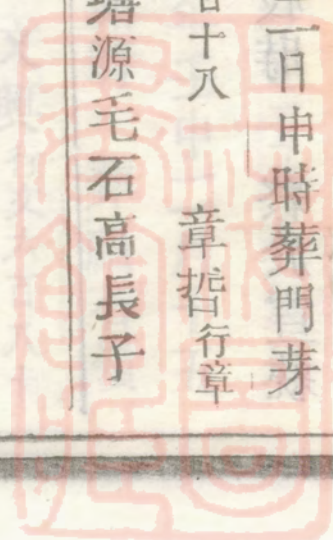 日申時葬門芽
十八　章哲行章
塘源毛石高長子